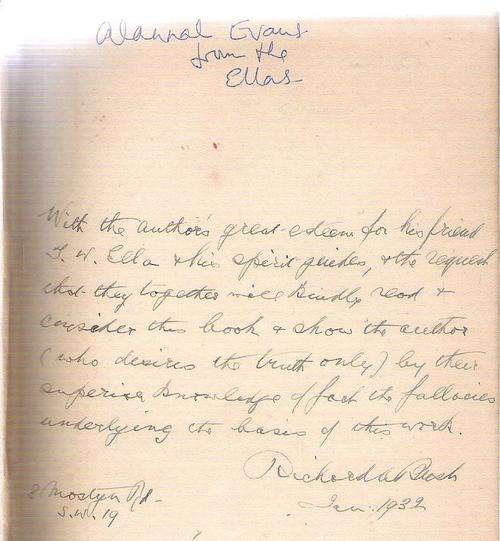 Evans
from the
Ellas
With the author's great esteem for his friend
T. W. Ella & his spirit guides, & the request
that they together will kindly read &
consider this book & show the author
(who desires the truth only) by their
superior knowledge of fact the fallacies
underlying the basis of this work.
Richard
Jan. 1932
Mostyn Rd.
S.W. 19